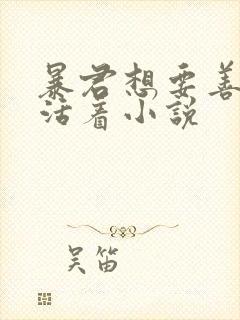 暴君想要善
活着小说
吴笛